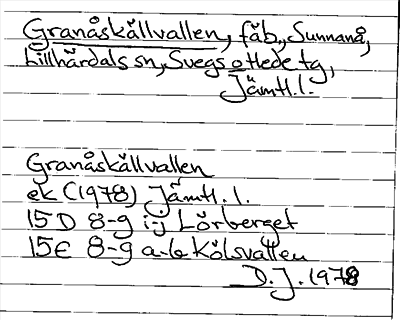 Granåskällvallen, fäb., Sunnanå,
Lillhärdals sn, Svegs ottede tg,
Jämtl. l.
Granåskällvallen
ek (1978) Jämtl. l.
15 D 8-g i-j Lörberget
15E 8-g a-b Kölsvallen
D.J. 1978